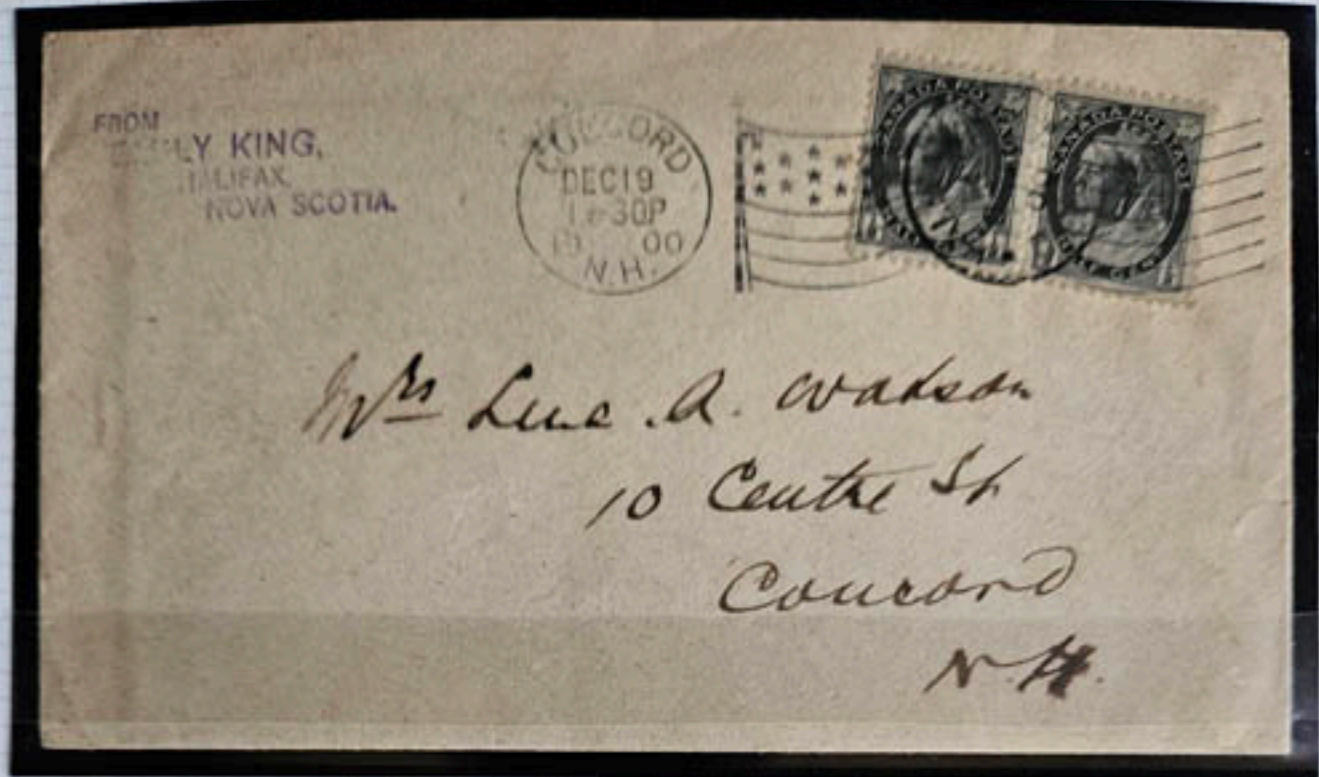 FROM
KING,
HALIFAX,
NOVA SCOTIA.
CONCORD
DEC 19
30P
1900
N.H.
CANADA POSTAGE
HALF CENT
CANADA POSTAGE
HALF CENT
Mrs A. Watson
10 Centre St
Concord
N.H.